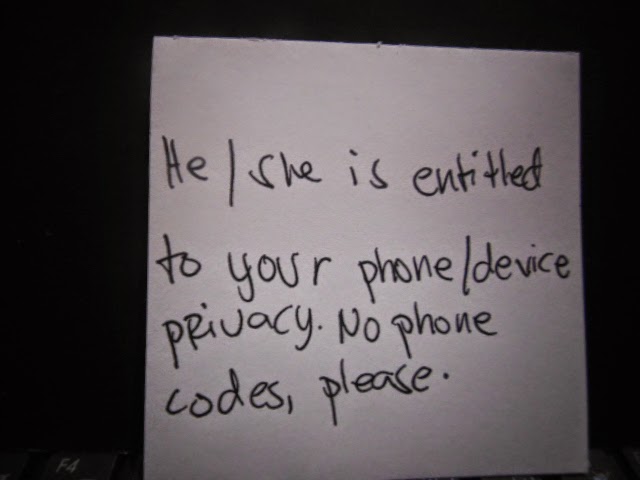 He/she is entitled
to your phone/device
privacy. No phone
codes, please.
F4